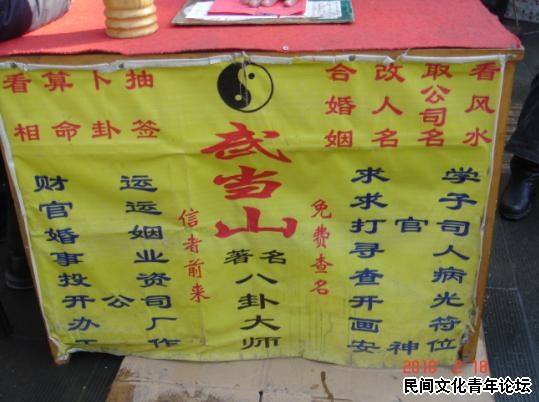 看相
算命
卜卦
抽签
合婚姻
改人名
取公司名
看风水
武当山
著名
八卦大师
信者前来
免费查名
财运
官运
婚姻
事业
投资
开公司
办厂
工作
求学
求子
打官司
寻人
查病
开光
画符
安神位
民间文化青年论坛